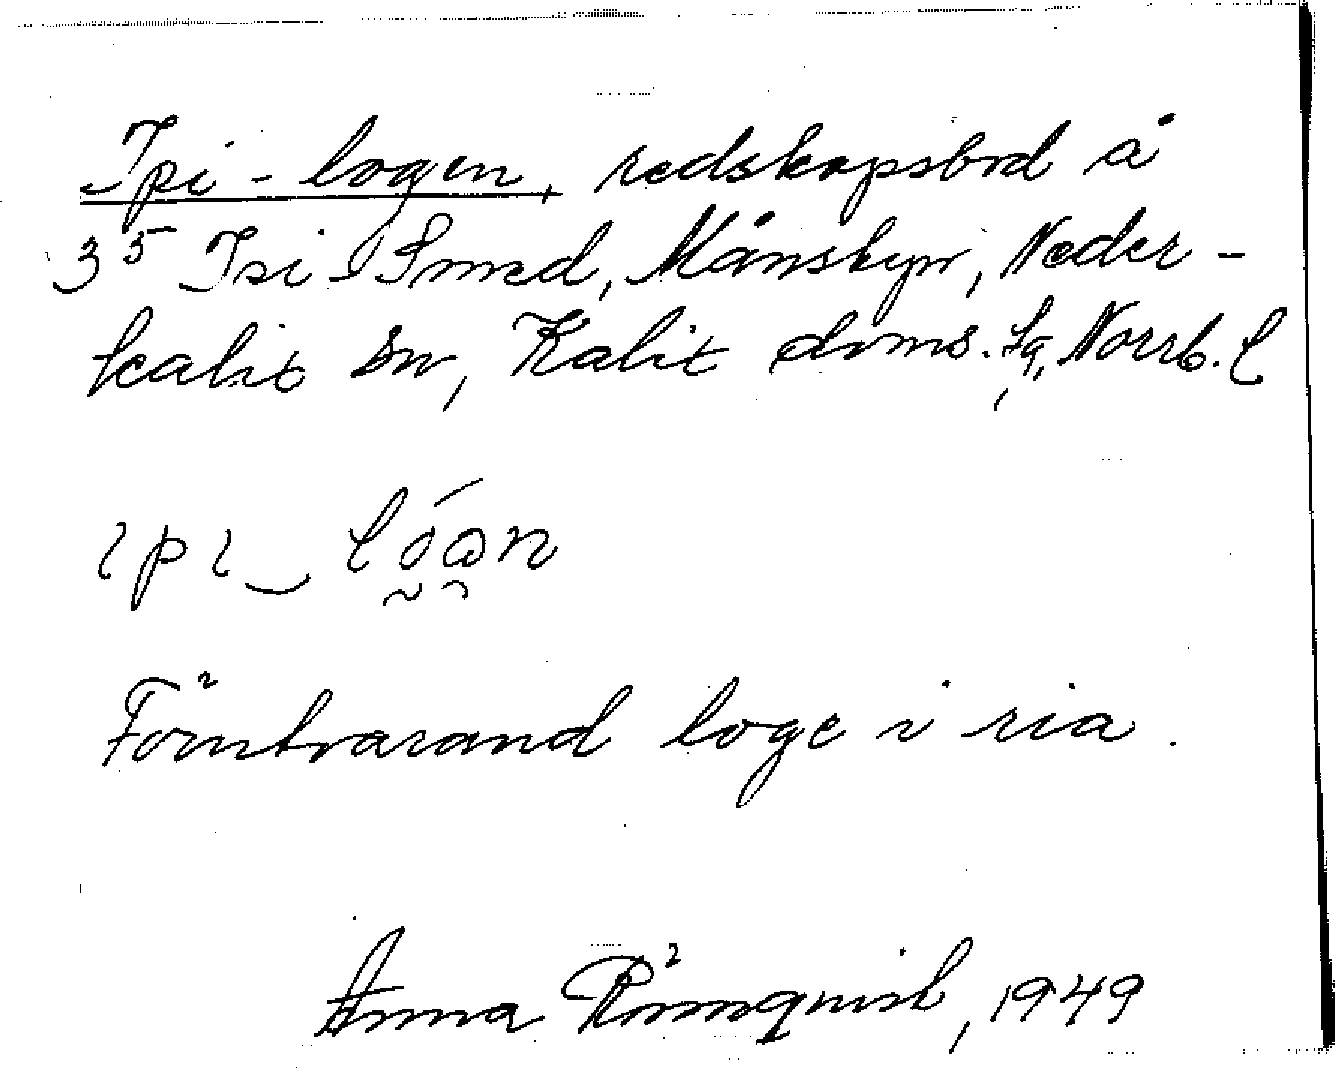 Ipi-logen, redskapsbod å
3⁵ Isi-Smed, Månsbyn, Neder-
kalix sn, Kalix doms. fg, Norrb. l
ɩpɩ‿lóan
Förutvarand loge i ria.
Anna Rönnqvist, 1949